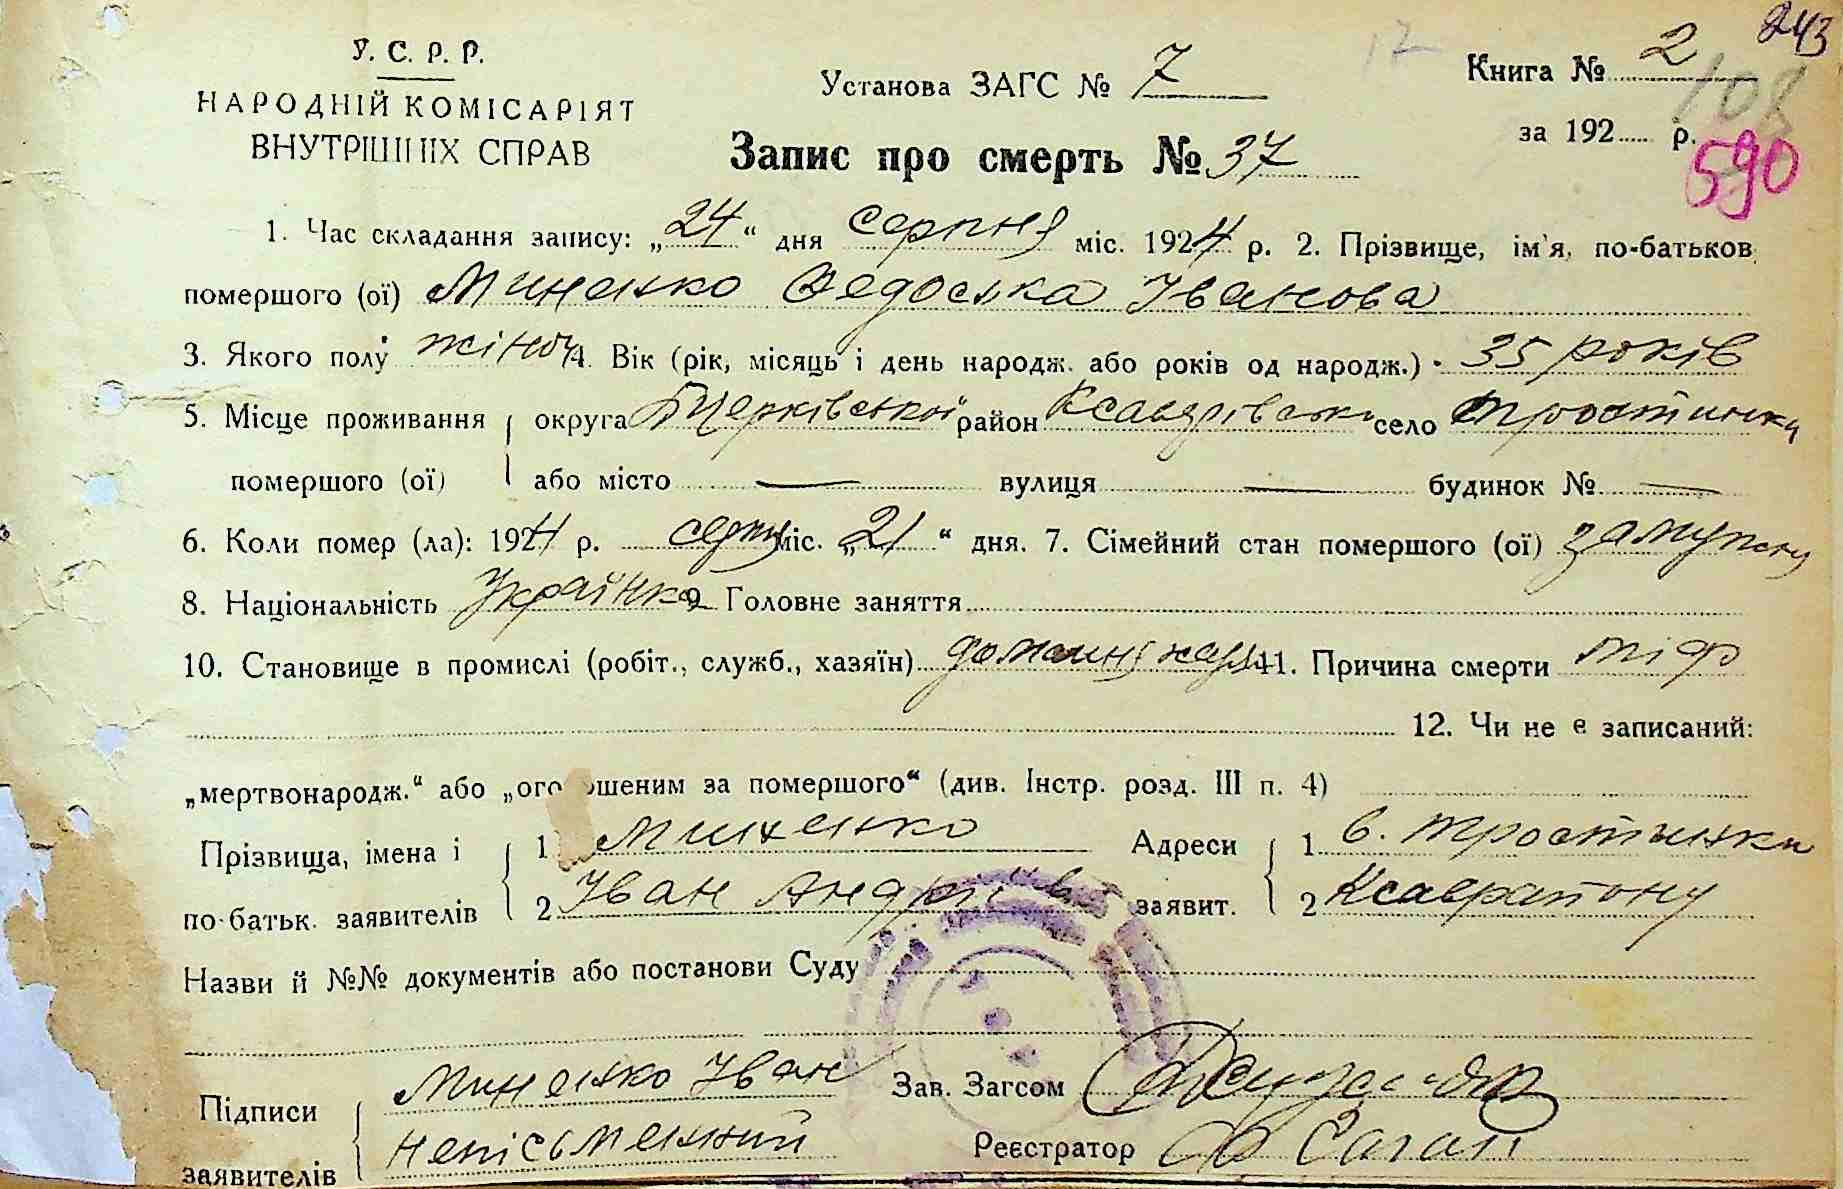 243
У. С. Р. Р.
НАРОДНІЙ КОМІСАРІЯТ
ВНУТРІШНІХ СПРАВ
Установа ЗАГС № 7
17
Книга № 2
108
за 192 р.
590
Запис про смерть № 37
1. Час складання запису: „24“ дня серпня міс. 1924 р. 2. Прізвище, ім'я, по-батьков
помершого (ої) Миненко Федоська Іванова
3. Якого полу жіноч 4. Вік (рік, місяць і день народж. або років од народж.) - 35 років
5. Місце проживання округа Бцерківської район село Тростинки
помершого (ої) або місто — вулиця — будинок № —
6. Коли помер (ла): 1924 р. серпн міс. „21“ дня. 7. Сімейний стан помершого (ої)
8. Національність Українка 9. Головне заняття
10. Становище в промислі (робіт., служб., хазяїн) 11. Причина смерти тіф
12. Чи не є записаний:
„мертвонародж.“ або „ого ошеним за помершого“ (див. Інстр. розд. III п. 4)
Прізвища, імена і 1 Миненко Адреси 1 с. Тростинки
по-батьк. заявителів 2 Іван Андріїв заявит. 2
Назви й №№ документів або постанови Суду
Підписи Миненко Іван Зав. Загсом
заявителів непісьменний Реєстратор